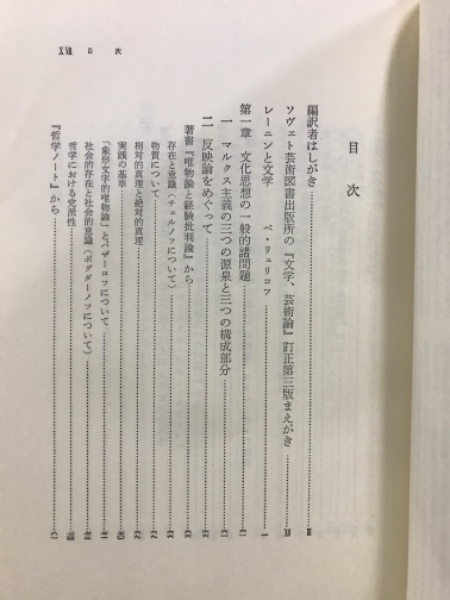 XVII 目次
目次
編訳者はしがき
ソヴェト芸術図書出版所の『文学、芸術論』訂正第三版まえがき XI
レーニンと文学 ベ・リュリコフ 1
第一章 文化思想の一般的諸問題
一 マルクス主義の三つの源泉と三つの構成部分
二 反映論をめぐって
著書『唯物論と経験批判論』から
存在と意識(チェルノフについて)
物質について
相対的真理と絶対的真理
実践の基準
「象形文字的唯物論」とバザーロフについて
社会的存在と社会的意識(ボグダーノフについて)
哲学における党派性
『哲学ノート』から